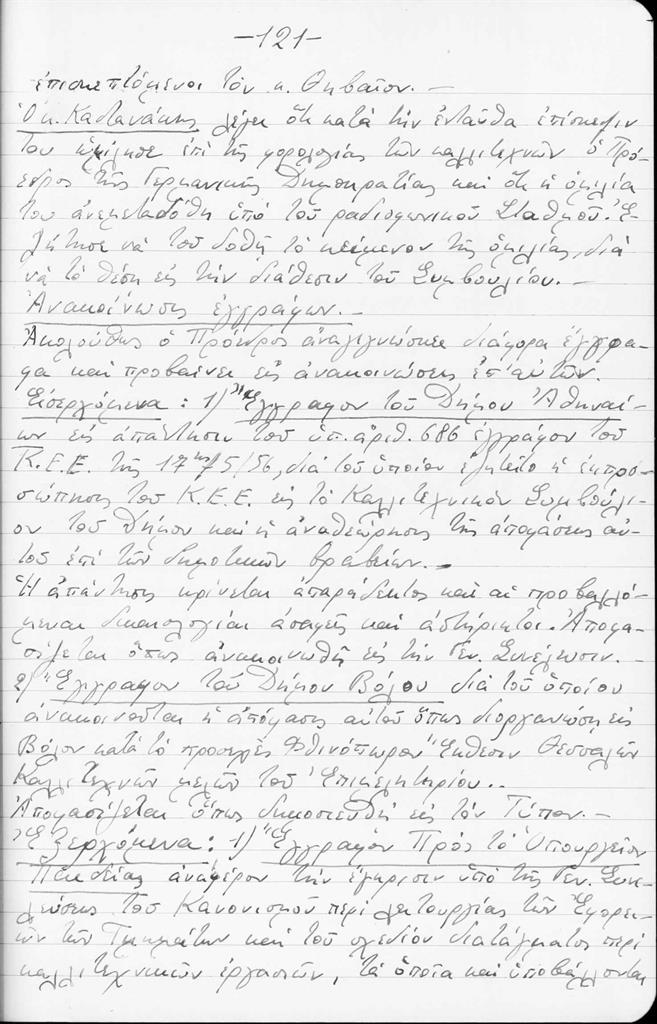 -121-
ἐπισκεπτόμενοι τὸν κ. Θηβαῖον. –
Ὁ κ. Καστανάκης λέγει ὅτι κατὰ τὴν ἐνταῦθα ἐπίσκεψιν
του ὡμίλησε ἐπὶ τῆς φορολογίας τῶν καλλιτεχνῶν ὁ Πρό-
εδρος τῆς Γερμανικῆς Δημοκρατίας καὶ ὅτι ἡ ὁμιλία
του ἀνεμεταδόθη ὑπὸ τοῦ ραδιοφωνικοῦ Σταθμοῦ. Ἐ-
ζήτησε νὰ τοῦ δοθῇ τὸ κείμενον τῆς ὁμιλίας, διὰ
νὰ τὸ θέσῃ εἰς τὴν διάθεσιν τοῦ Συμβουλίου. –
Ἀνακοίνωσις ἐγγράφων. –
Ἀκολούθως ὁ Πρόεδρος ἀναγιγνώσκει διάφορα ἔγγρα-
φα καὶ προβαίνει εἰς ἀνακοινώσεις ἐπ' αὐτῶν.
Εἰσερχόμενα: 1) Ἔγγραφον τοῦ Δήμου Ἀθηναί-
ων εἰς ἀπάντησιν τοῦ ὑπ. ἀριθ. 686 ἐγγράφου τοῦ
Κ.Ε.Ε. τῆς 17ης/5/56, διὰ τοῦ ὁποίου ἐζητεῖτο ἡ ἐκπρο-
σώπησις τοῦ Κ.Ε.Ε. εἰς τὸ Καλλιτεχνικὸν Συμβούλι-
ον τοῦ Δήμου καὶ ἡ ἀναθεώρησις τῆς ἀποφάσεως αὐ-
τοῦ ἐπὶ τῶν δημοτικῶν βραβείων. –
Ἡ ἀπάντησις κρίνεται ἀπαράδεκτος καὶ αἱ προβαλλό-
μεναι δικαιολογίαι ἀσαφεῖς καὶ ἀστήρικτοι. Ἀποφα-
σίζεται ὅπως ἀνακοινωθῇ εἰς τὴν Γεν. Συνέλευσιν. –
2) Ἔγγραφον τοῦ Δήμου Βόλου διὰ τοῦ ὁποίου
ἀνακοινοῦται ἡ ἀπόφασις αὐτοῦ ὅπως διοργανώσῃ εἰς
Βόλον κατὰ τὸ προσεχὲς Φθινόπωρον Ἔκθεσιν Θεσσαλῶν
Καλλιτεχνῶν μελῶν τοῦ Ἐπιμελητηρίου. –
Ἀποφασίζεται ὅπως δημοσιευθῇ εἰς τὸν Τύπον. –
Ἐξερχόμενα: 1) Ἔγγραφον Πρὸς τὸ Ὑπουργεῖον
Παιδείας ἀναφέρον τὴν ἔγκρισιν ὑπὸ τῆς Γεν. Συνε-
λεύσεως τοῦ Κανονισμοῦ περὶ λειτουργίας τῶν Ἐφορει-
ῶν τῶν Τμημάτων καὶ τοῦ σχεδίου διατάγματος περὶ
καλλιτεχνικῶν ἐργασιῶν, τὰ ὁποῖα καὶ ὑποβάλλονται